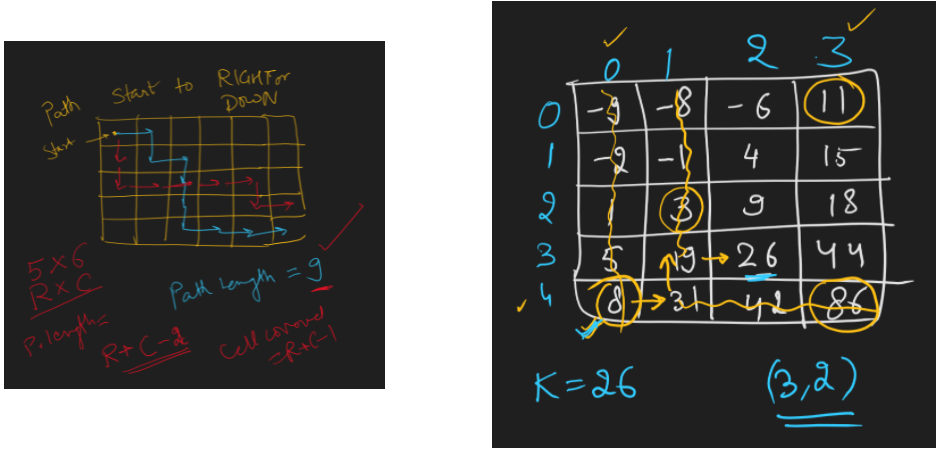 Path Start to RIGHT or
DOWN
Start
5 X 6
R X C
Path Length = 9
P. length =
R + C - 2
Cell covered
= R + C - 1
0 1 2 3
0 -9 -8 -6 11
1 -2 -1 4 15
2 1 3 9 18
3 5 19 26 44
4 8 31 42 86
K = 26 (3,2)